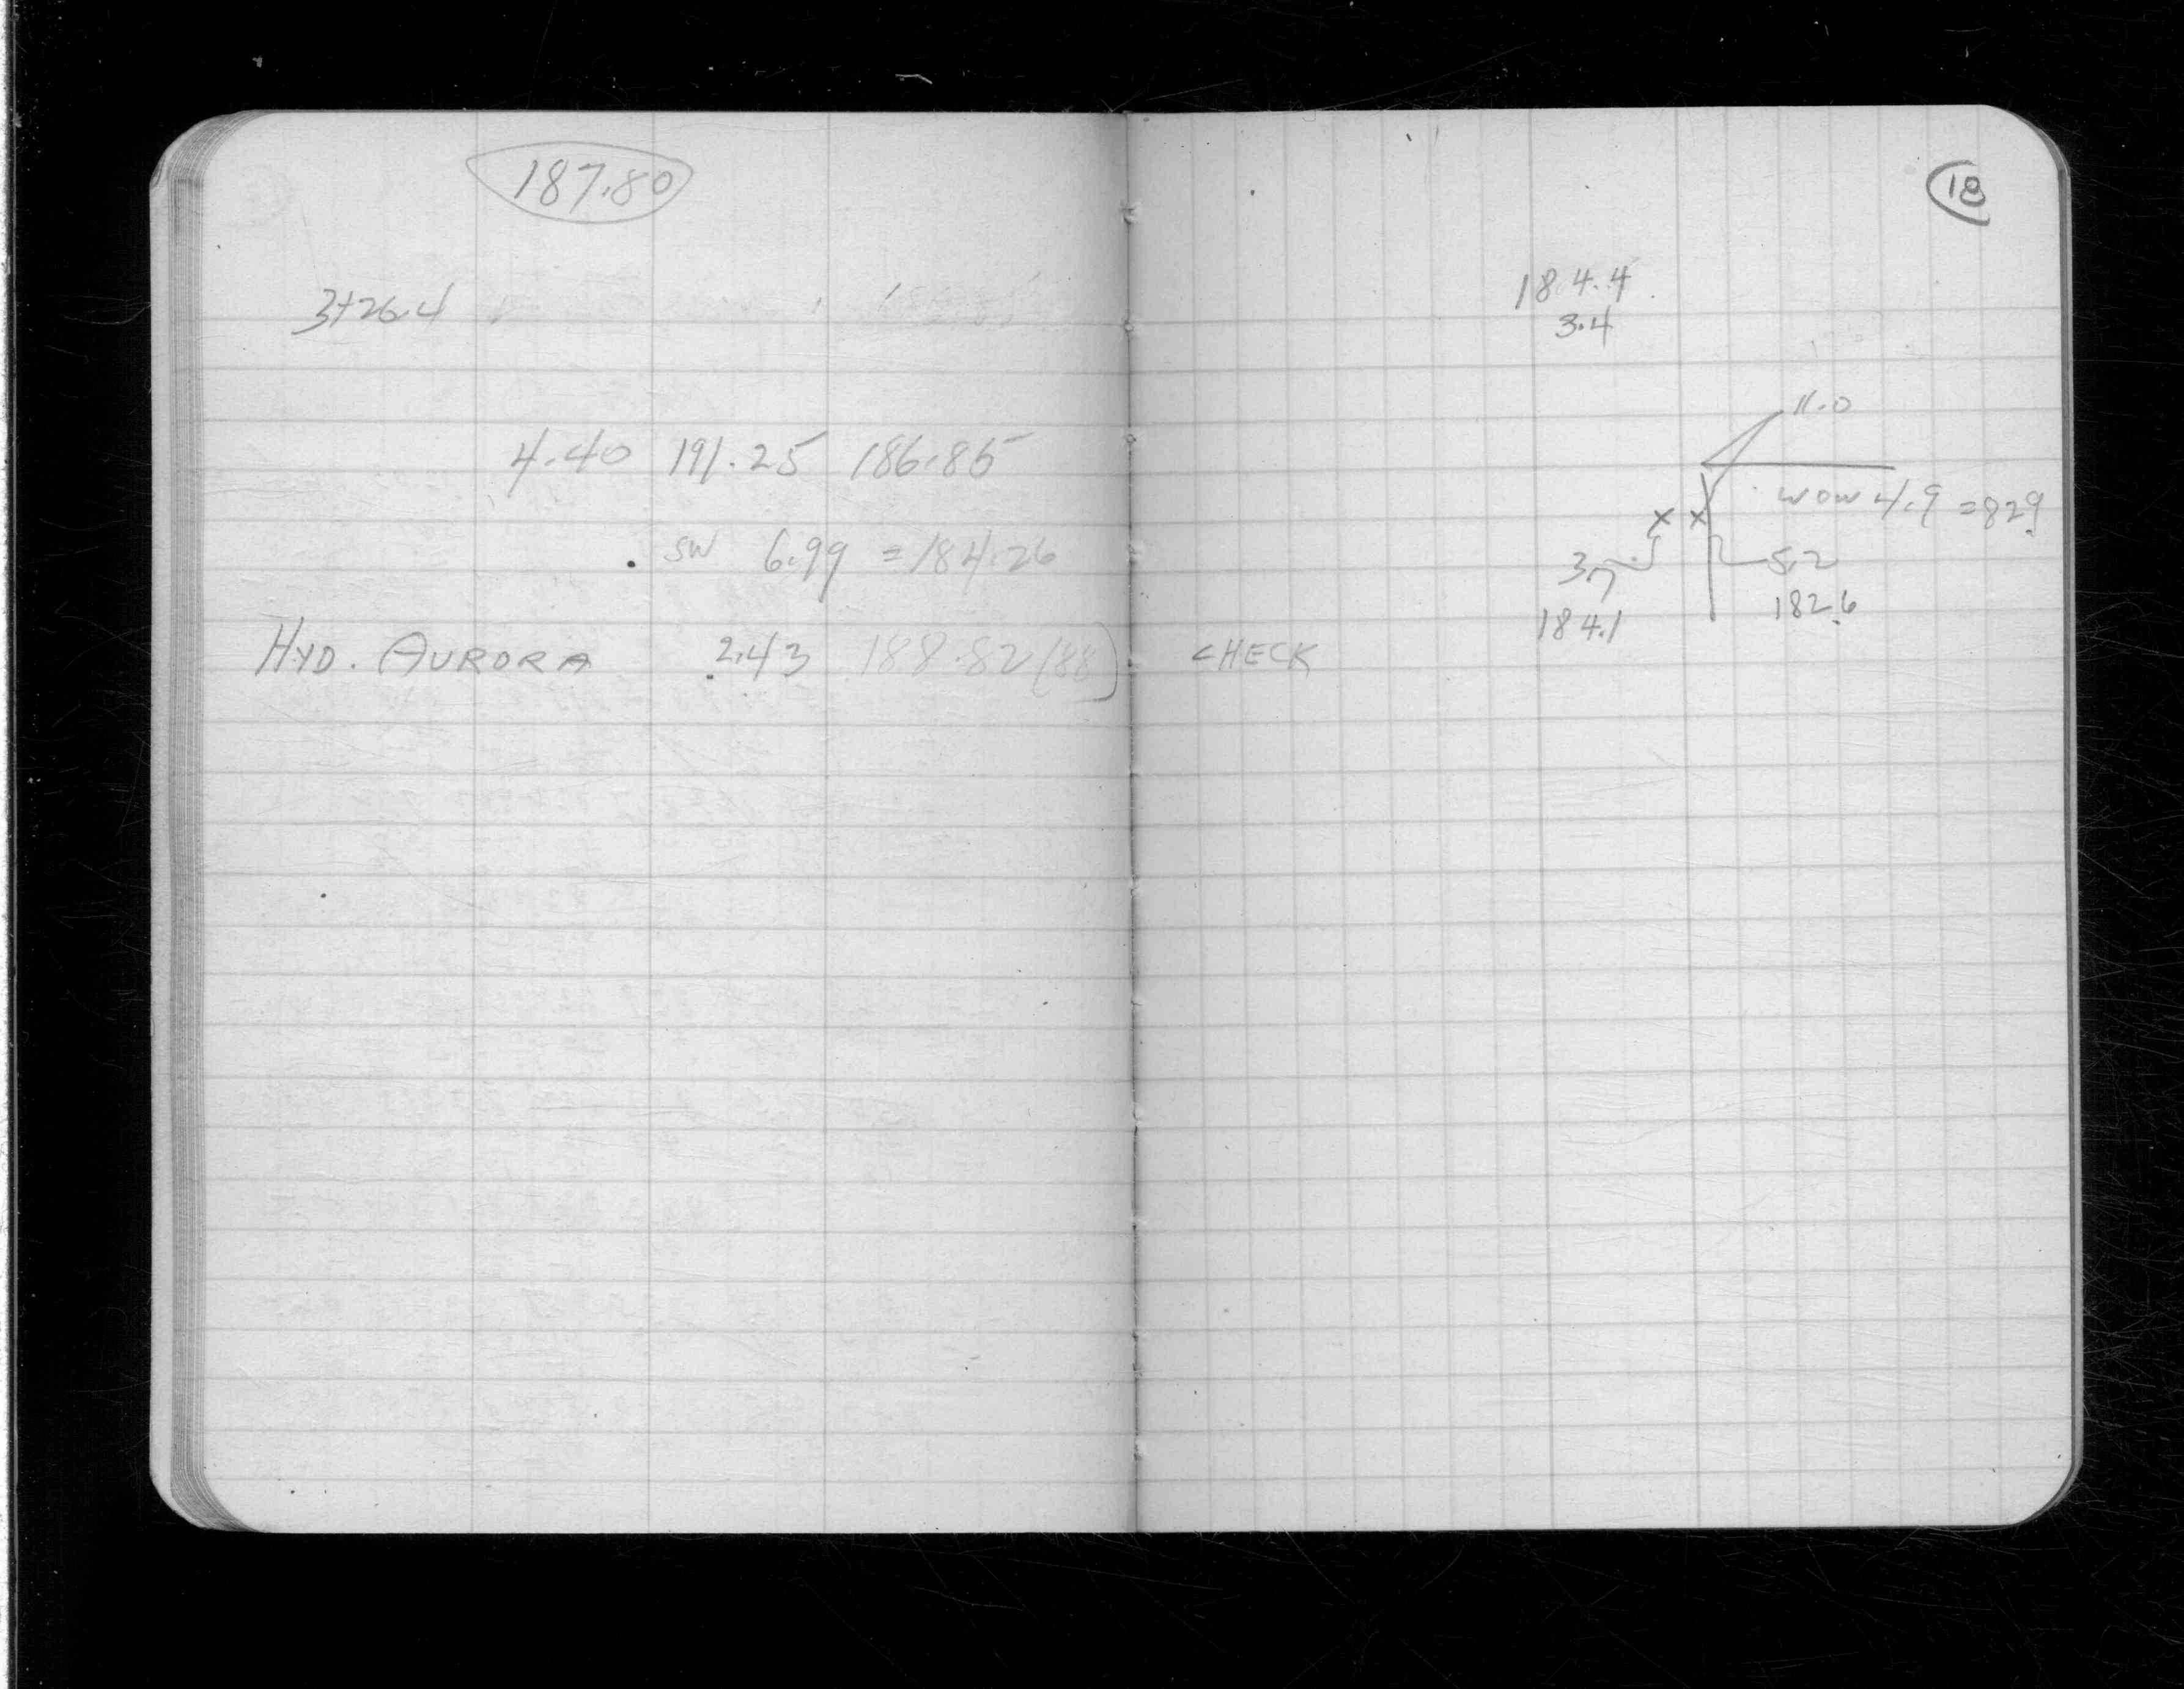 187.80
3+26.4
4.40 191.25 186.85
SW 6.99 = 184.26
HYD. AURORA 2.43 188.82 (88) CHECK
18
184.4
3.4
11.0
WOW 4.9 = 829
3.7
5.2
184.1
182.6